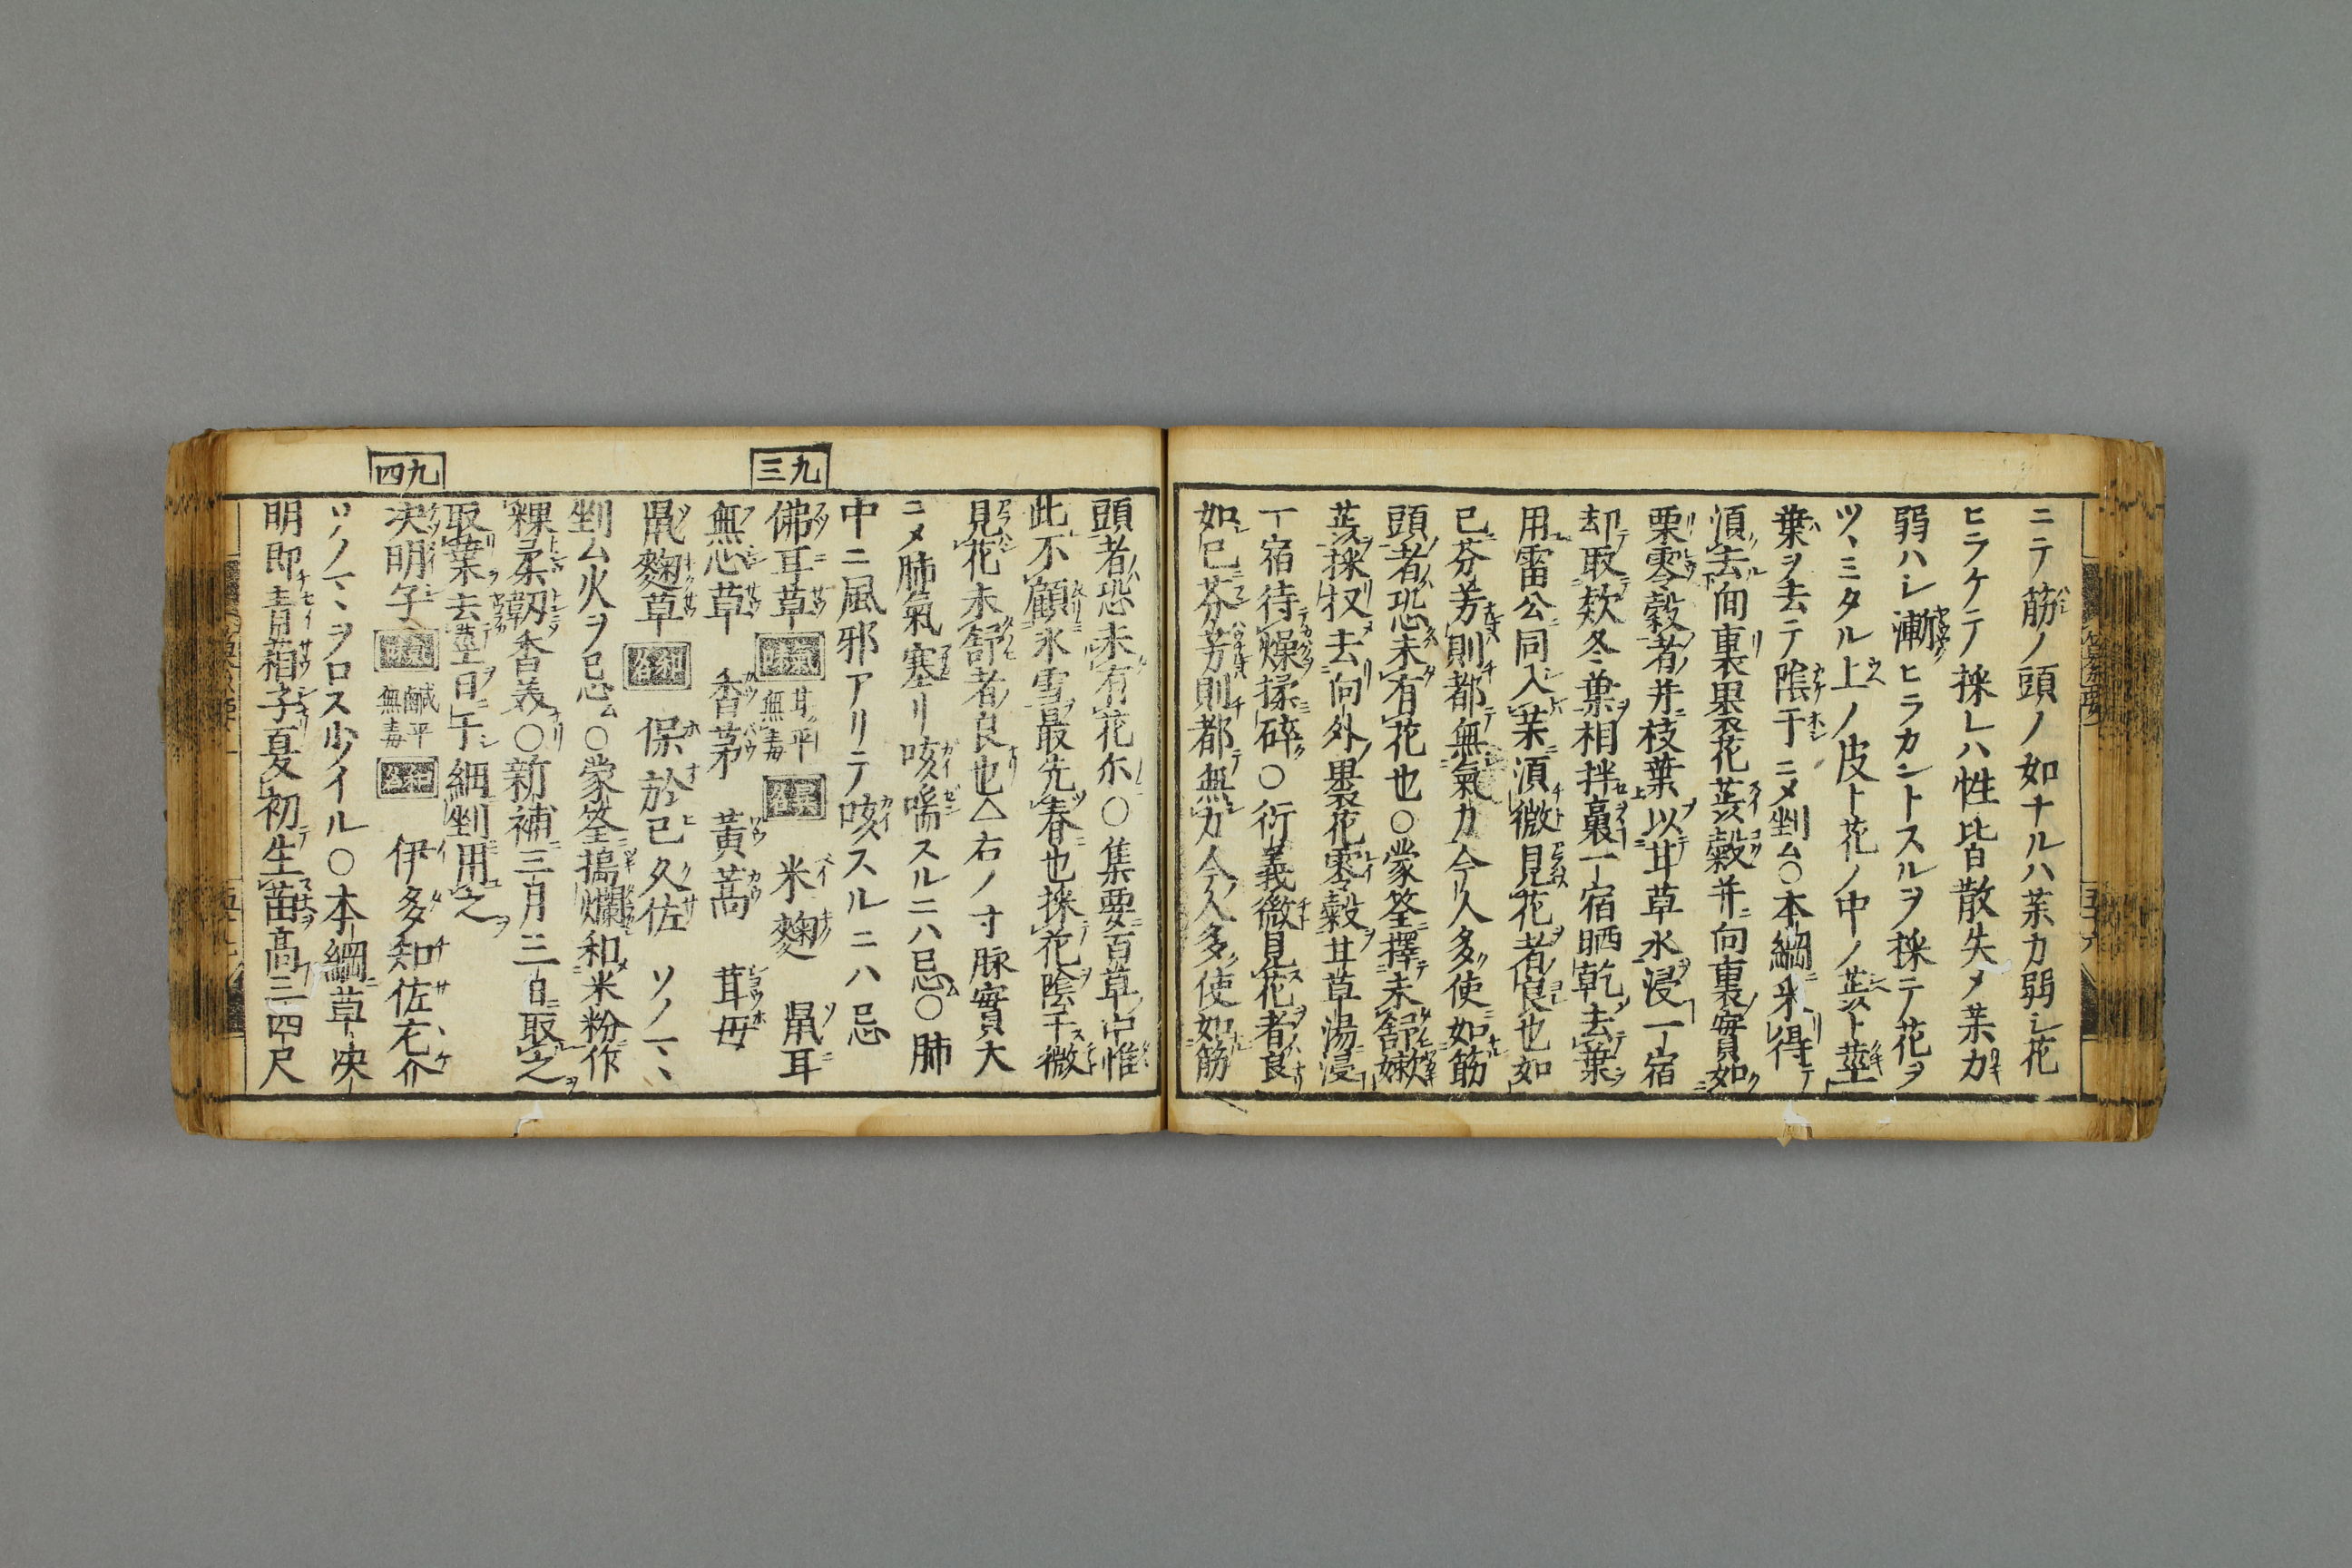 ニテ筋ノ頭ノ如ナルハ茱カ弱シ花
ヒラケテ採レハ性皆散失メ茱カ
弱ハシ漸ヒラカントスルヲ採テ花ヲ
ツヽミタル上ノ皮ト花ノ中ノ蕋ト莖
葉ヲ去テ陰干ニメ剉ム○本綱釆得
湏去向裏裹花蕋殻并向裏實如
栗零殻者并枝葉以甘草水浸一宿
却取欵冬葉相拌裛一宿晒乾去葉
用雷公同入茱湏微見花者良也如
已芬芳則都無氣力今人多使如筋
頭者恐未有花也○蒙筌擇未舒嫩
蕋採収去向外裹花零殻甘草湯浸
一宿待燥揉碎○衍義微見花者良
如已芬芳則都無力今人多使如筋
頭者恐未有花尓○集要百草中惟
此不顧氷雪最先春也採花陰干微
見花未舒者良也△右ノ寸脉實大
ニメ肺氣塞リ咳喘スルニハ忌○肺
中ニ風邪アリテ咳スルニハ忌
三九
佛耳草 氣味 甘平無毒 異名 米麴 鼠耳
無心草 香茅 黃蒿 茸毋
鼠麴草 和名 保於己久佐 ソノマヽ
剉ム火ヲ忌ム○蒙筌搗爛和米粉作
粿柔韌香美○新補三月三日取之
取葉去莖日干細剉用之
四九
决明子 氣味 鹹平無毒 和名 伊多知佐々介
ソノマヽヲロス少イル○本綱草决
明即青葙子夏初生苗高三四尺